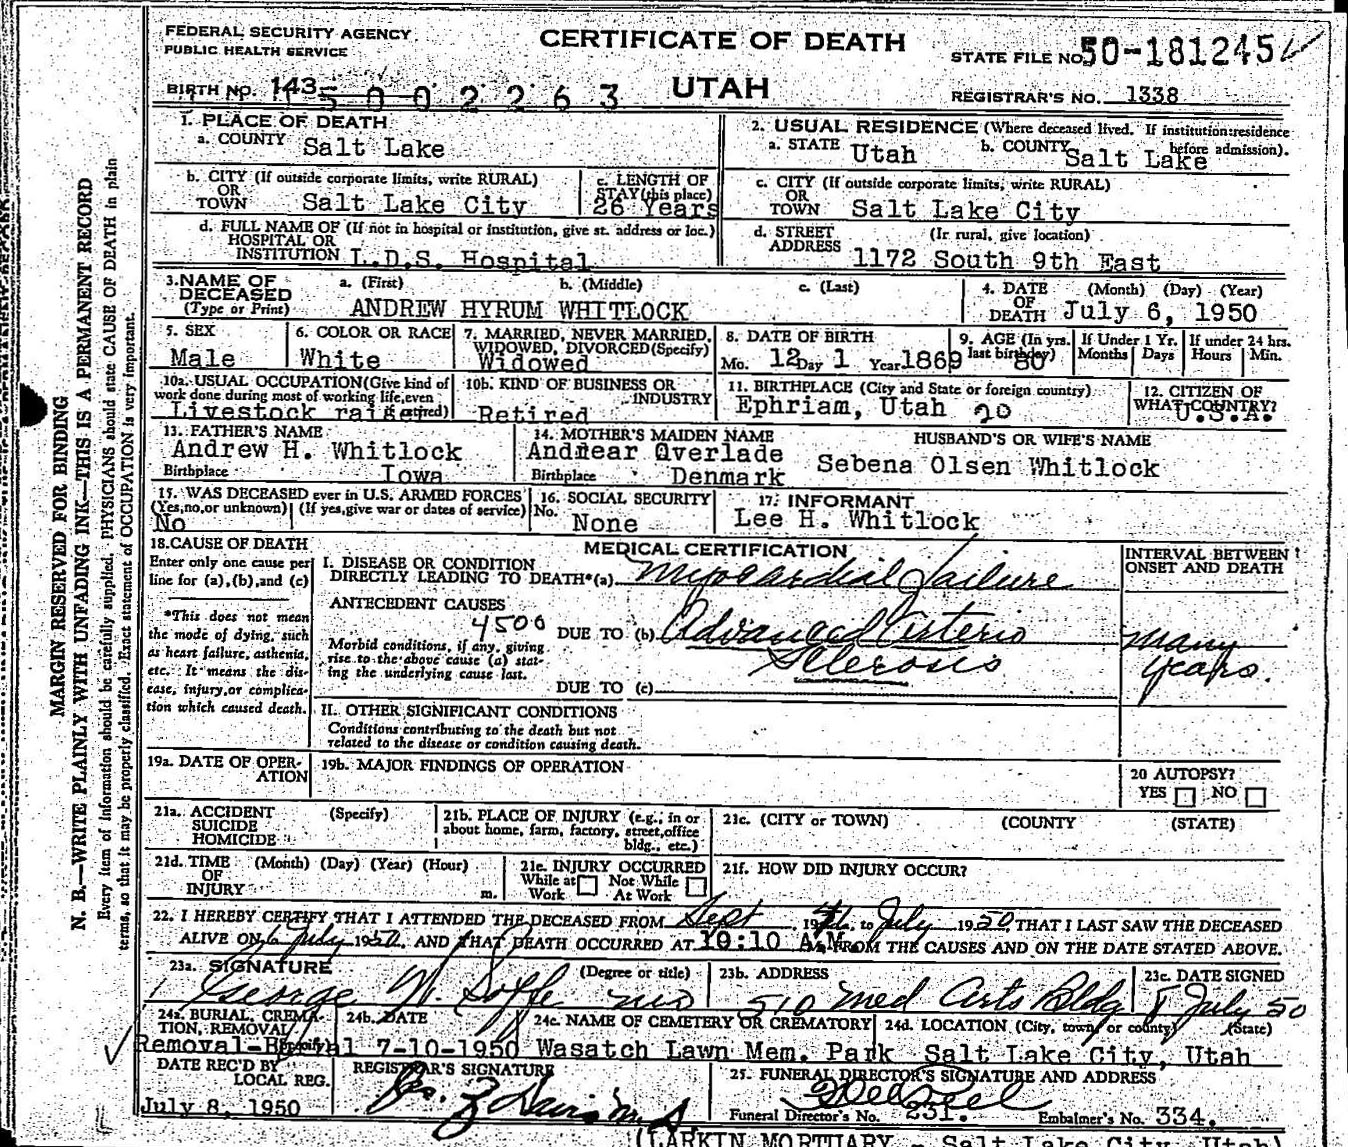 FEDERAL SECURITY AGENCY
PUBLIC HEALTH SERVICE
CERTIFICATE OF DEATH
UTAH
STATE FILE NO. 50-181245
BIRTH NO. 143
5 0 0 2 2 6 3
REGISTRAR'S NO. 1338
1. PLACE OF DEATH
a. COUNTY Salt Lake
2. USUAL RESIDENCE (Where deceased lived. If institution: residence before admission).
a. STATE Utah b. COUNTY Salt Lake
b. CITY (If outside corporate limits, write RURAL)
OR
TOWN Salt Lake City
c. LENGTH OF
STAY (this place)
26 Years
c. CITY (If outside corporate limits, write RURAL)
OR
TOWN Salt Lake City
d. FULL NAME OF (If not in hospital or institution, give st. address or loc.)
HOSPITAL OR
INSTITUTION L.D.S. Hospital
d. STREET (If rural, give location)
ADDRESS 1172 South 9th East
3. NAME OF
DECEASED
(Type or Print)
a. (First) b. (Middle) c. (Last)
ANDREW HYRUM WHITLOCK
4. DATE (Month) (Day) (Year)
OF
DEATH July 6, 1950
5. SEX
Male
6. COLOR OR RACE
White
7. MARRIED, NEVER MARRIED,
WIDOWED, DIVORCED (Specify)
Widowed
8. DATE OF BIRTH
Mo. 12 Day 1 Year 1869
9. AGE (In yrs.
last birthday)
80
If Under 1 Yr.
Months Days
If under 24 hrs.
Hours Min.
10a. USUAL OCCUPATION (Give kind of
work done during most of working life, even
if retired)
Livestock raiser
10b. KIND OF BUSINESS OR
INDUSTRY
Retired
11. BIRTHPLACE (City and State or foreign country)
Ephriam, Utah 20
12. CITIZEN OF
WHAT COUNTRY?
U.S.A.
13. FATHER'S NAME
Andrew H. Whitlock
Birthplace Iowa
14. MOTHER'S MAIDEN NAME
Andnear Overlade
Birthplace Denmark
HUSBAND'S OR WIFE'S NAME
Sebena Olsen Whitlock
15. WAS DECEASED ever in U.S. ARMED FORCES
(Yes, no, or unknown) (If yes, give war or dates of service)
No
16. SOCIAL SECURITY
No.
None
17. INFORMANT
Lee H. Whitlock
18. CAUSE OF DEATH
Enter only one cause per
line for (a), (b), and (c)
*This does not mean
the mode of dying, such
as heart failure, asthenia,
etc. It means the dis-
ease, injury, or complica-
tion which caused death.
MEDICAL CERTIFICATION
INTERVAL BETWEEN
ONSET AND DEATH
I. DISEASE OR CONDITION
DIRECTLY LEADING TO DEATH* (a) Myocardial failure
ANTECEDENT CAUSES
4500
DUE TO (b) Advanced Arterio
Sclerosis
many
years.
Morbid conditions, if any, giving
rise to the above cause (a) stat-
ing the underlying cause last.
DUE TO (c)
II. OTHER SIGNIFICANT CONDITIONS
Conditions contributing to the death but not
related to the disease or condition causing death.
19a. DATE OF OPER-
ATION
19b. MAJOR FINDINGS OF OPERATION
20 AUTOPSY?
YES NO
21a. ACCIDENT (Specify)
SUICIDE
HOMICIDE
21b. PLACE OF INJURY (e.g., in or
about home, farm, factory, street, office
bldg., etc.)
21c. (CITY or TOWN) (COUNTY) (STATE)
21d. TIME (Month) (Day) (Year) (Hour)
OF
INJURY m.
21e. INJURY OCCURRED
While at Work Not While At Work
21f. HOW DID INJURY OCCUR?
22. I HEREBY CERTIFY THAT I ATTENDED THE DECEASED FROM Sept 19 to July 1950, THAT I LAST SAW THE DECEASED
ALIVE ON 6 July 1950, AND THAT DEATH OCCURRED AT 10:10 A.M., FROM THE CAUSES AND ON THE DATE STATED ABOVE.
23a. SIGNATURE (Degree or title)
George N. Soffe MD
23b. ADDRESS
510 Med Arts Bldg
23c. DATE SIGNED
8 July 50
24a. BURIAL, CREMA-
TION, REMOVAL
(Specify)
Removal-Burial
24b. DATE
7-10-1950
24c. NAME OF CEMETERY OR CREMATORY
Wasatch Lawn Mem. Park
24d. LOCATION (City, town, or county) (State)
Salt Lake City, Utah
DATE REC'D BY
LOCAL REG.
July 8, 1950
REGISTRAR'S SIGNATURE
25. FUNERAL DIRECTOR'S SIGNATURE AND ADDRESS
Funeral Director's No. 231. Embalmer's No. 334.
(LARKIN MORTUARY - Salt Lake City, Utah
MARGIN RESERVED FOR BINDING
N. B.—WRITE PLAINLY WITH UNFADING INK—THIS IS A PERMANENT RECORD
Every item of information should be carefully supplied. PHYSICIANS should state CAUSE OF DEATH in plain
terms, so that it may be properly classified. Exact statement of OCCUPATION is very important.